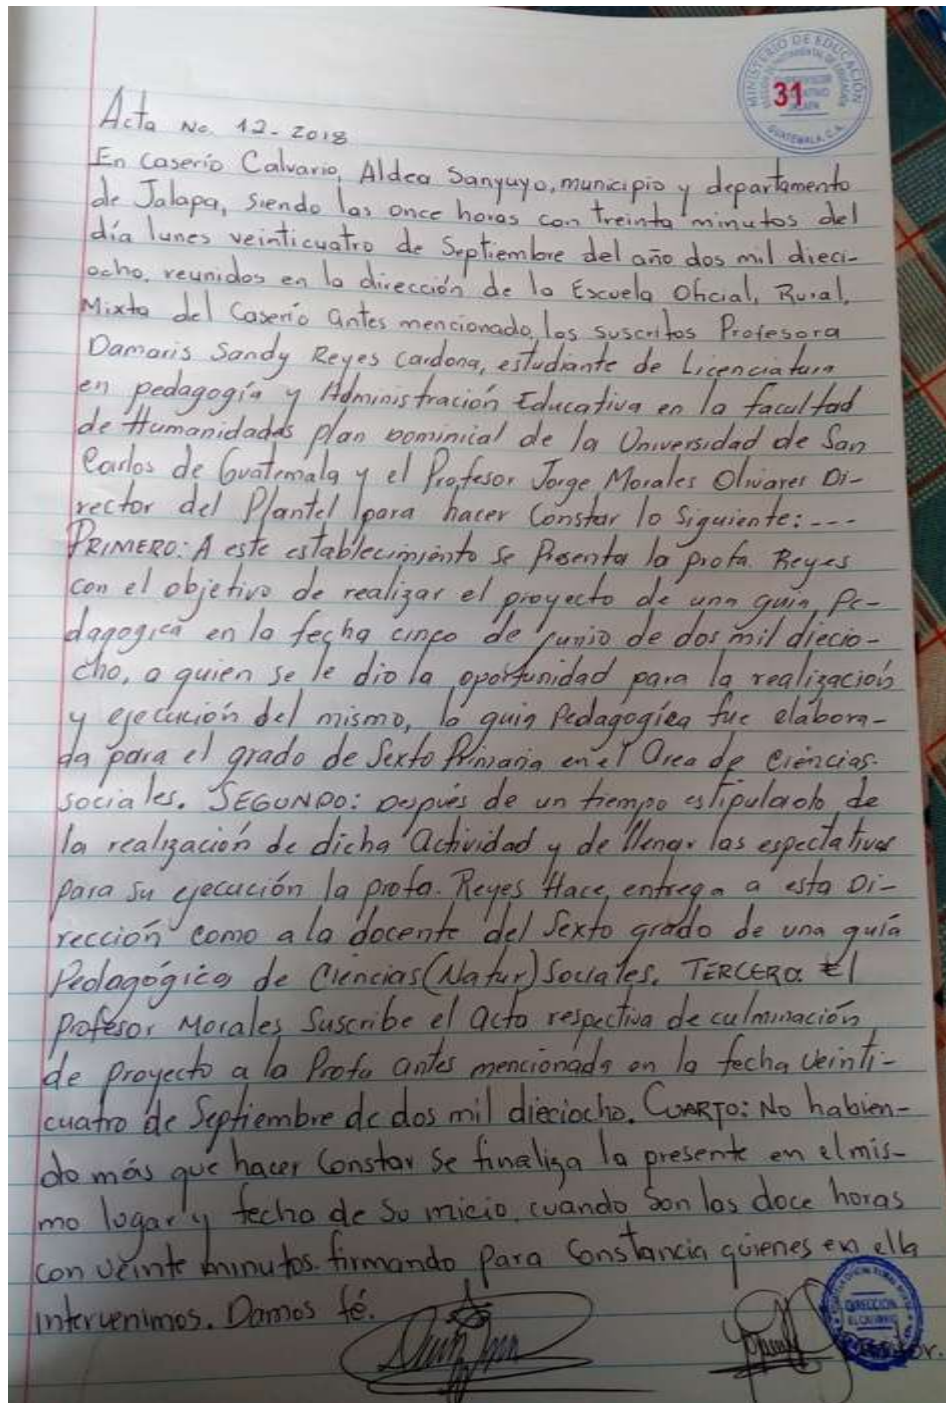 MINISTERIO DE EDUCACIÓN
GUATEMALA, C.A.
31
Acta No. 12-2018
En Caserío Calvario, Aldea Sanyuyo, municipio y departamento
de Jalapa, siendo las once horas con treinta minutos del
día lunes veinticuatro de Septiembre del año dos mil dieci-
ocho, reunidos en la dirección de la Escuela Oficial, Rural,
Mixta del Caserío antes mencionado, los suscritos Profesora
Damaris Sandy Reyes Cardona, estudiante de Licenciatura
en pedagogía y Administración Educativa en la facultad
de Humanidades plan Dominical de la Universidad de San
Carlos de Guatemala y el Profesor Jorge Morales Olivares Di-
rector del Plantel para hacer Constar lo Siguiente: ---
PRIMERO: A este establecimiento se Presenta la profa. Reyes
con el objetivo de realizar el proyecto de una guia, Pe-
dagogica en la fecha cinco de junio de dos mil diecio-
cho, a quien se le dio la oportunidad para la realización
y ejecución del mismo, la guia Pedagogica fue elabora-
da para el grado de Sexto Primaria en el Area de Ciencias
sociales. SEGUNDO: Después de un tiempo estipulado de
la realización de dicha Actividad y de llenar las espectativas
para su ejecución la profa. Reyes Hace entrega a esta Di-
rección como a la docente del Sexto grado de una guía
Pedagógica de Ciencias (Natur) Sociales. TERCERO: El
Profesor Morales Suscribe el acta respectiva de culminación
de proyecto a la Profa antes mencionada en la fecha veinti-
cuatro de Septiembre de dos mil dieciocho. CUARTO: No habien-
do más que hacer Constar Se finaliza la presente en el mis-
mo lugar y fecha de su inicio, cuando son las doce horas
con veinte minutos. firmando para Constancia quienes en ella
intervenimos. Damos fé.
DIRECCION
EL CALVARIO